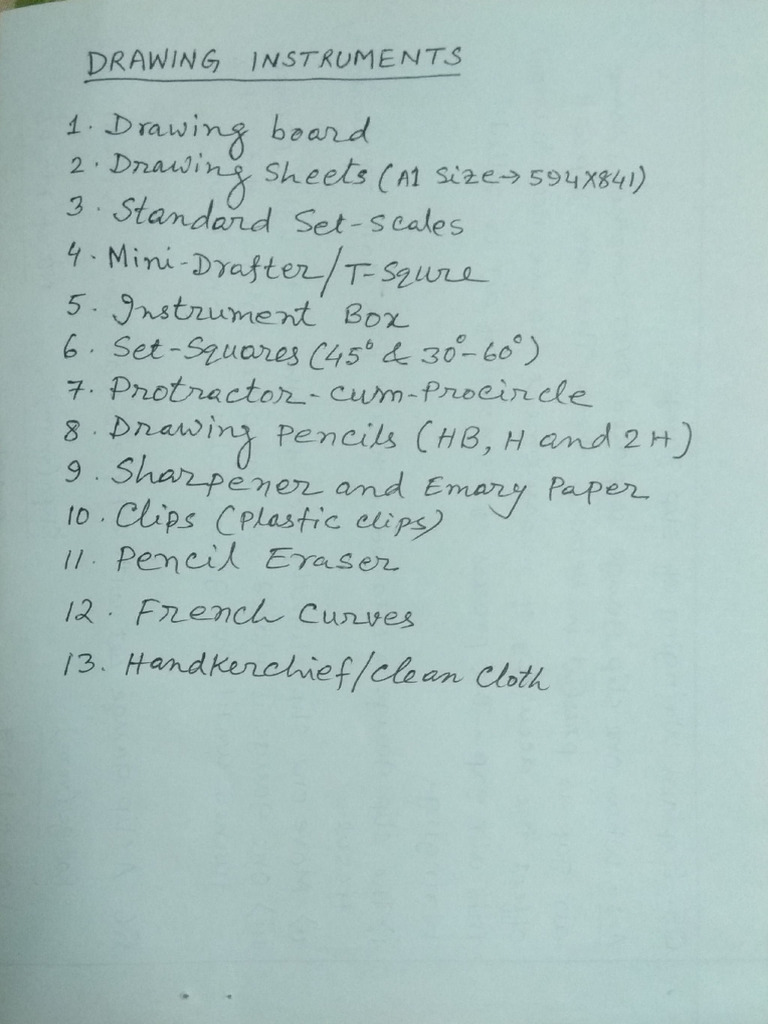 DRAWING INSTRUMENTS
1. Drawing board
2. Drawing Sheets (A1 Size→594X841)
3. Standard Set-Scales
4. Mini-Drafter/T-Squre
5. Instrument Box
6. Set-Squares (45° & 30°-60°)
7. Protractor-cum-Procircle
8. Drawing Pencils (HB, H and 2H)
9. Sharpener and Emary Paper
10. Clips (Plastic clips)
11. Pencil Eraser
12. French Curves
13. Handkerchief/Clean Cloth